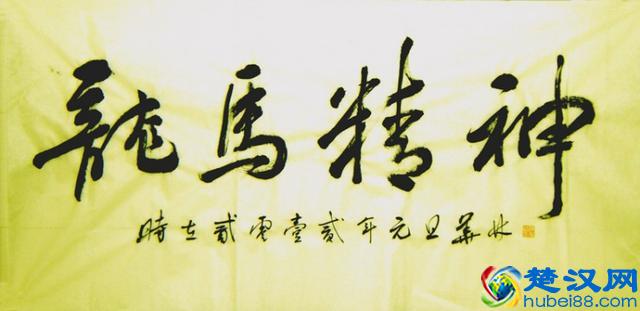 龍馬精神
時在貳零壹貳年元旦
楚汉网
hubei88.com